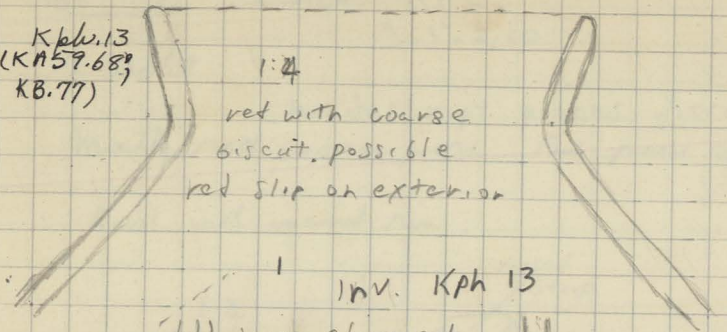 Kph.13
(KA59.68,
KB.77)
1:4
red with coarse
biscuit. possible
red slip on exterior
1
Inv. Kph 13